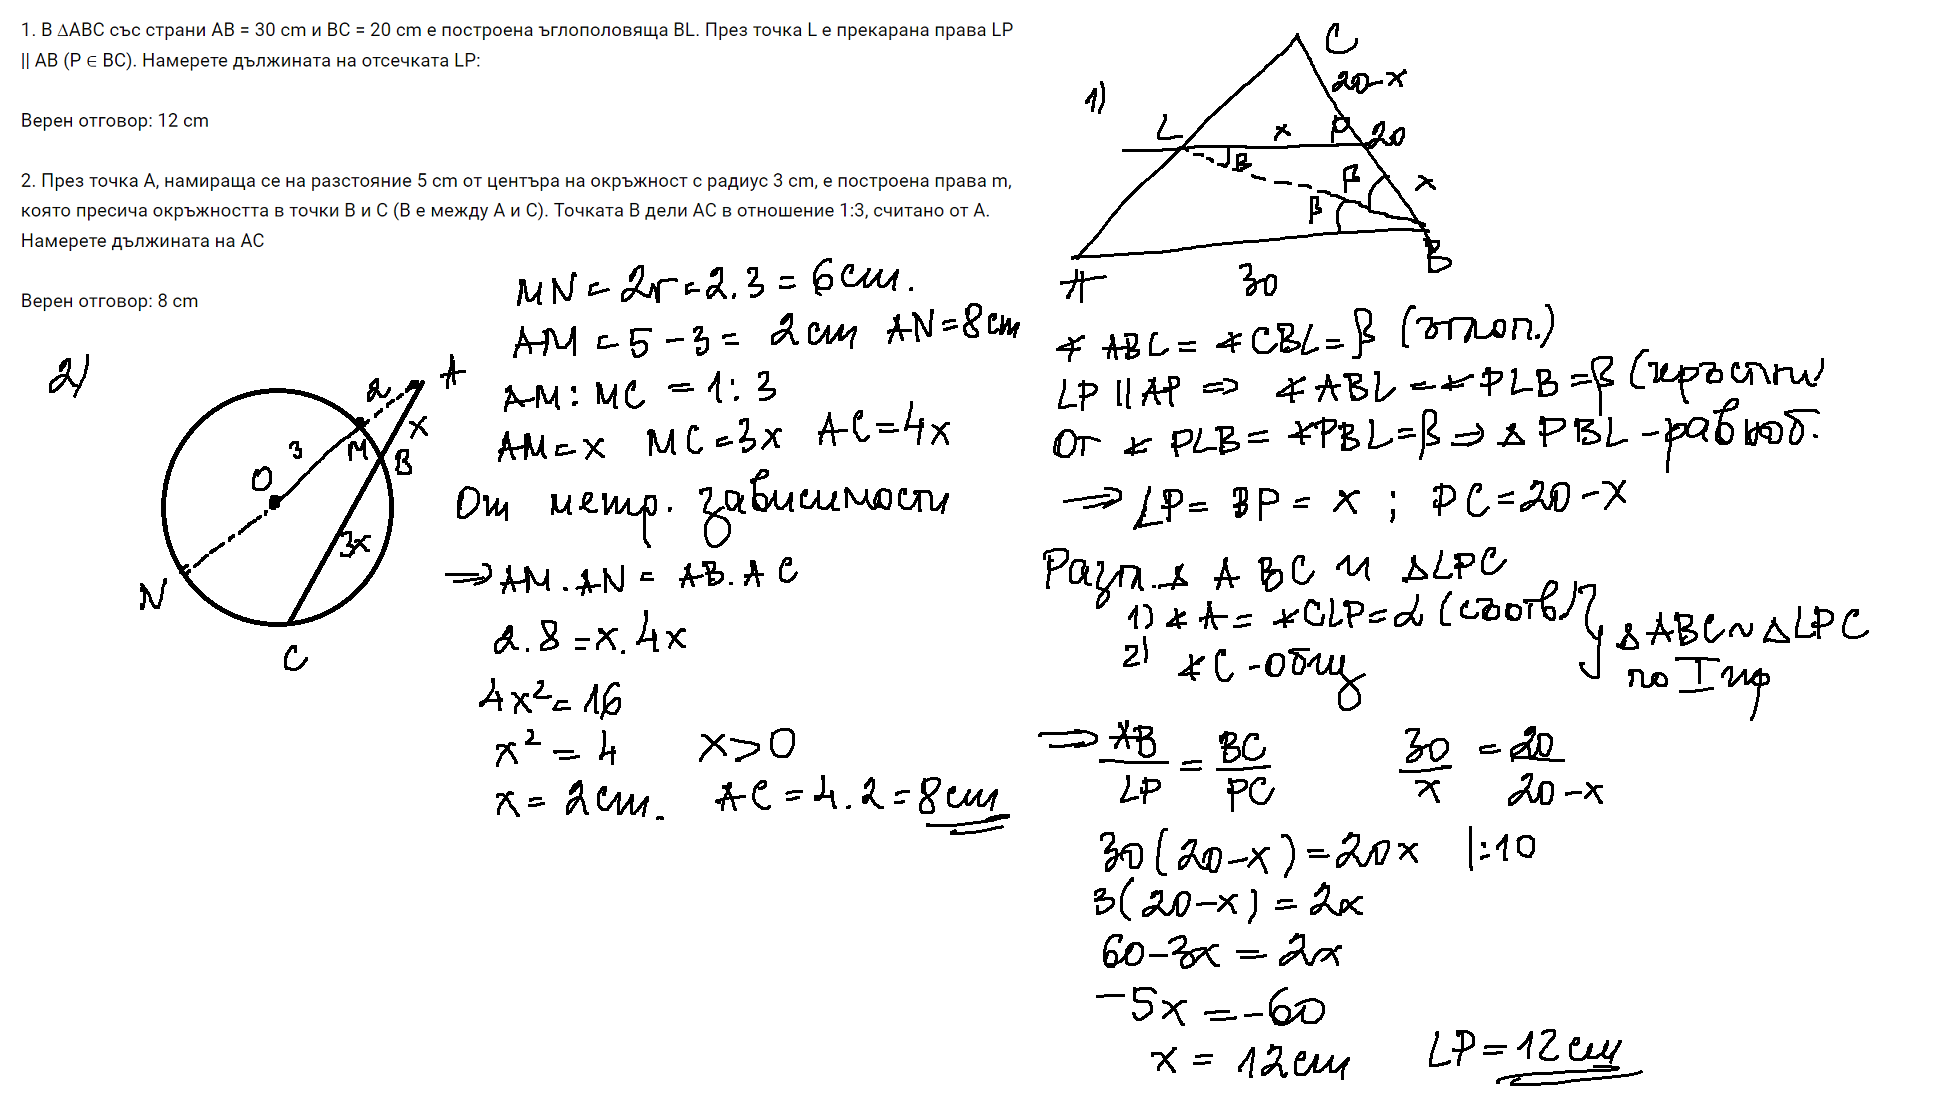 1. В ΔABC със страни AB = 30 cm и BC = 20 cm е построена ъглополовяща BL. През точка L е прекарана права LP
|| AB (P ∈ BC). Намерете дължината на отсечката LP:
Верен отговор: 12 cm
2. През точка A, намираща се на разстояние 5 cm от центъра на окръжност с радиус 3 cm, е построена права m,
която пресича окръжността в точки B и C (B е между A и C). Точката B дели AC в отношение 1:3, считано от A.
Намерете дължината на AC
Верен отговор: 8 cm
2)
A
2
x
M
B
3
O
3x
N
C
MN = 2r = 2.3 = 6cm.
AM = 5 - 3 = 2cm AN = 8cm
AM : MC = 1 : 3
AM = x MC = 3x AC = 4x
От метр. зависимости
=> AM . AN = AB . AC
2.8 = x.4x
4x² = 16
x² = 4 x > 0
x = 2cm. AC = 4.2 = 8cm
1)
C
20-x
L
x
P
20
β
β
x
β
A
30
B
∢ ABL = ∢ CBL = β (ъглоп.)
LP || AP => ∢ ABL = ∢ PLB = β (кръстни)
От ∢ PLB = ∢ PBL = β => Δ PBL - равноб.
=> LP = BP = x ; PC = 20 - x
Разгл. Δ ABC и ΔLPC
1) ∢ A = ∢ CLP = α (съотв.)
2) ∢ C - общ
Δ ABC ~ Δ LPC
по I пр
=> AB/LP = BC/PC 30/x = 20/20-x
30(20-x) = 20x |:10
3(20-x) = 2x
60-3x = 2x
-5x = -60
x = 12cm LP = 12cm